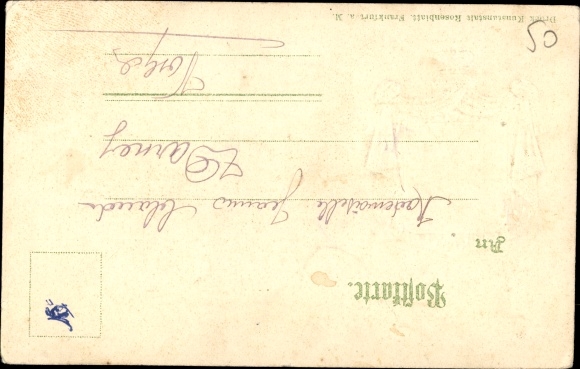 Postkarte.
An
Mademoiselle Jeanne
Darney
Vosges
Druck Kunstanstalt Rosenblatt, Frankfurt a. M.
50